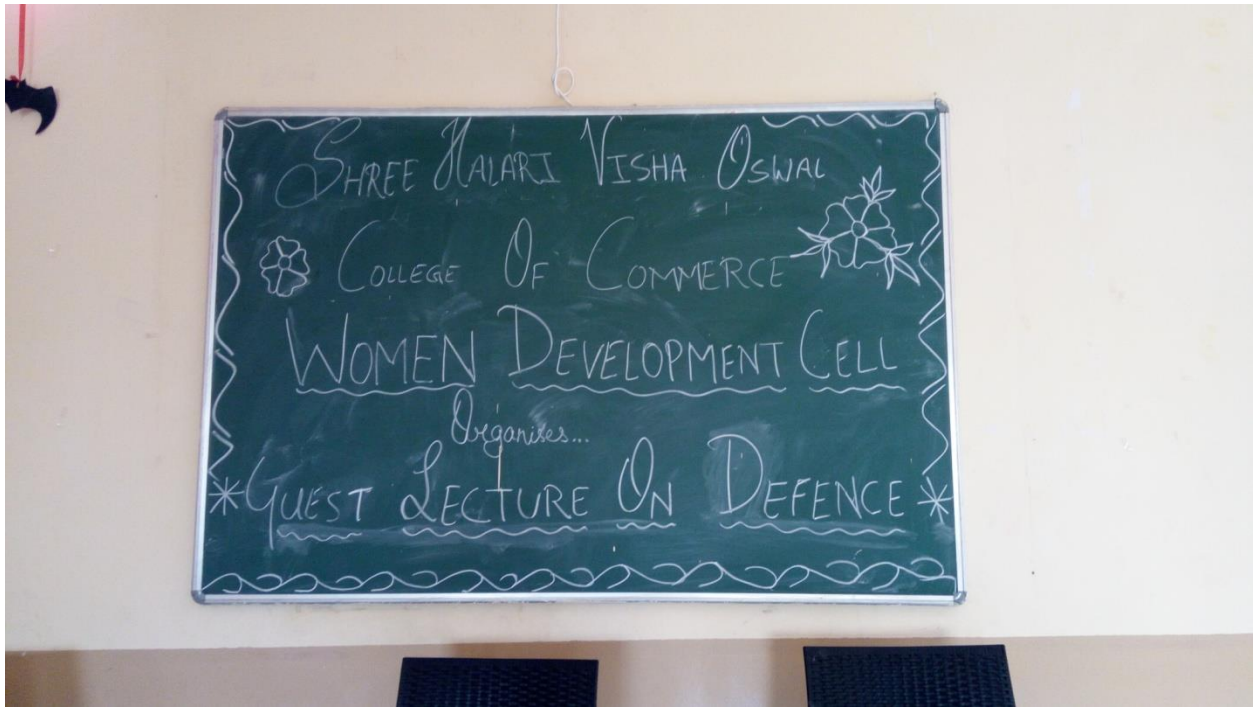 SHREE HALARI VISHA OSWAL
COLLEGE OF COMMERCE
WOMEN DEVELOPMENT CELL
Organises...
*GUEST LECTURE ON DEFENCE*